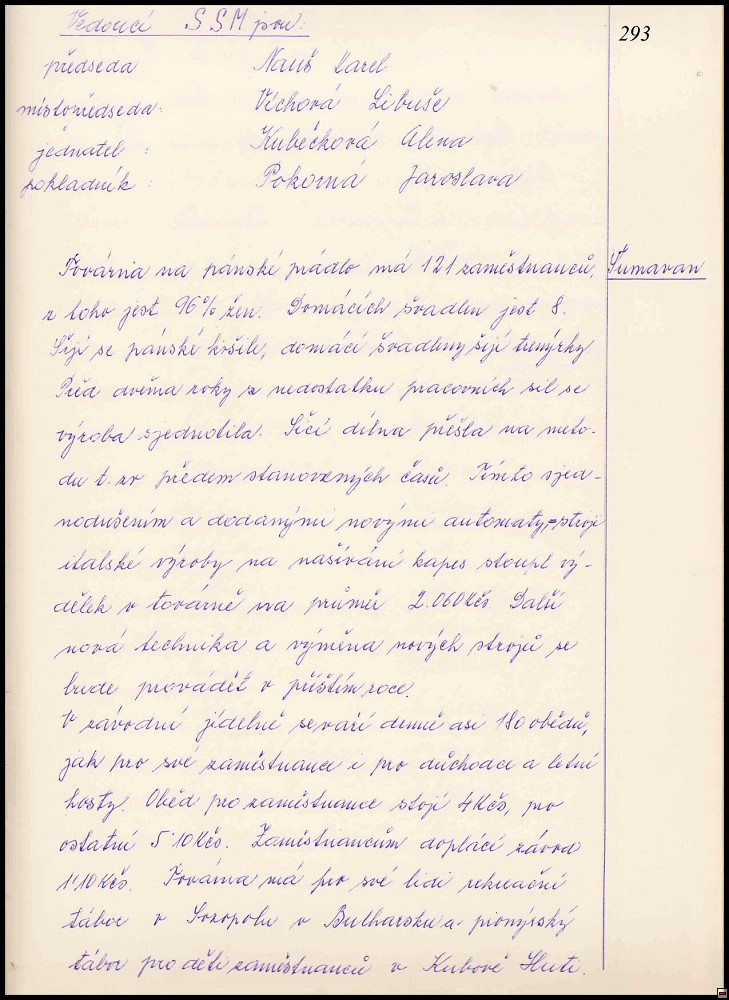 Vedoucí SSM jsou:
293
předseda Nauš Karel
místopředseda: Víchová Libuše
jednatel : Kubéčková Alena
pokladník : Pokorná Jaroslava
Továrna na pánské prádlo má 121 zaměstnanců, Šumavan
z toho jest 96% žen. Domácích švadlen jest 8.
Šijí se pánské košile, domácí švadleny šijí trenýrky.
Před dvěma roky z nedostatku pracovních sil se
výroba sjednotila. Šicí dílna přešla na meto-
du t. zv předem stanovených časů. Tímto sjed-
nodušením a dodanými novými automaty-stroji
italské výroby na našívání kapes stoupl vý-
dělek v továrně na průměr 2.060 Kčs. Další
nová technika a výměna nových strojů se
bude provádět v příštím roce.
V závodní jídelně se vaří denně asi 180 obědů,
jak pro své zaměstnance i pro důchodce a letní
hosty. Oběd pro zaměstnance stojí 4 Kčs, pro
ostatní 5'10 Kčs. Zaměstnancům doplácí závod
1'10 Kčs. Továrna má pro své lidi rekreační
tábor v Sozopolu v Bulharsku a pionýrský
tábor pro děti zaměstnanců v Kubově Huti.